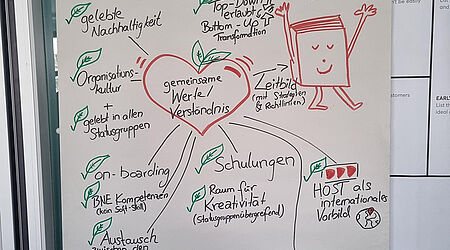 gelebte
Nachhaltigkeit
Top-Down
erlaubt &
Bottom-Up
Transformation
Organisations-
kultur
+
gelebt in allen
Statusgruppen
gemeinsame
Werte/
Verständnis
Leitbild
(mit Strategien
& Richtlinien)
on-boarding
BNE Kompetenzen
(kein Soft-Skill)
Austausch
zwischen den
Schulungen
Raum für
Kreativität
(Statusgruppenübergreifend)
HOST als
internationales
Vorbild
customers
EARL
ideal